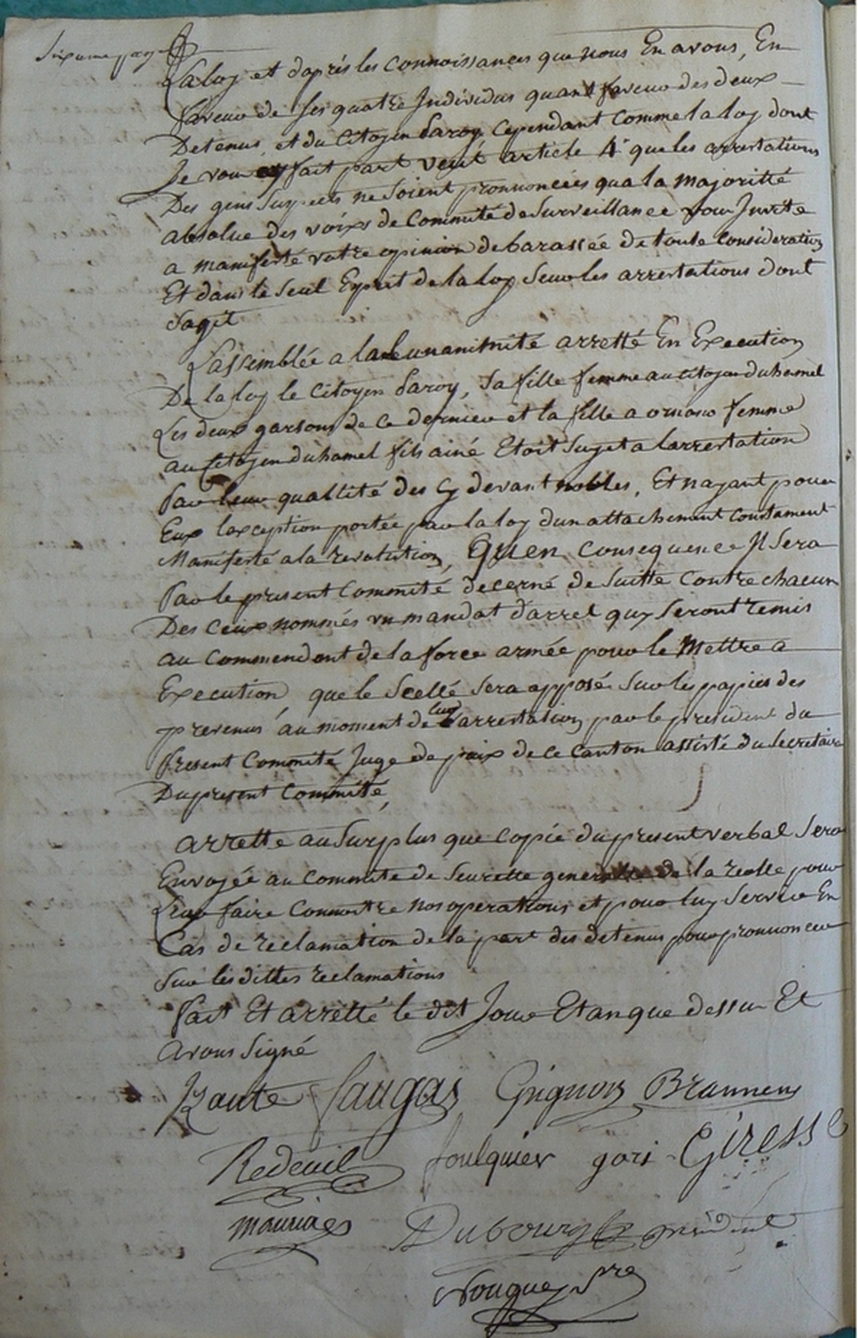 Sixieme page
la loy et daprés les connoissances que nous En avons, En
faveur de ses quatre Individus quant faveur des deux
Detenus, et du Citoyen Saroy, cependant comme la loy dont
Je vous ay fait part veut article 4e que les arrestations
Des gens suspects ne soient prononcées qua la majoritté
absolue des voix de Committé de Surveillance vous Invite
a manifesté votre opinion debarassée de toute consideration
Et dans le seul Esprit de la loy Sur les arrestations dont
Sagit
Lassemblée a la unanimité arretté En Execution
De la loy le Citoyen Saroy, Sa fille femme au Citoyen duhamel
Les deux garsons de ce dernier et la fille a femme
au Citoyen duhamel fils ainé Etoit Sujet a larrestation
Par leur quallité des Cy devant nobles, Et nayant pour
Eux lexception portée par la loy dun attachement constament
Manifesté a la revolution, Quen consequence Il Sera
Par le present Committé decerné de Suitte contre chacun
Des ceux nommés un mandat darret quy Seront remis
au commendent de la force armée pour le Mettre a
Execution que le Scellé Sera apposé Sur les papiers des
prevenus au moment de leur arrestation par le president du
Present Committé Juge de paix de ce canton assisté du Secretaire
Du present Committé,
arrette au Surplus que copie du present verbal Sera
Envoyée au committe de Seurette generalle de la reolle pour
Leur faire connoitre nos operations et pour luy Servir En
Cas de reclamation de la part des detenus pour prononcer
Sur les dittes reclamations
fait Et arretté le dit Jour Et an que dessus Et
avons Signé
Zaute Saugas Grignon Brannens
Redeuil foulquier gori Giresse
mauriac Dubourg president
Nouguey Sre